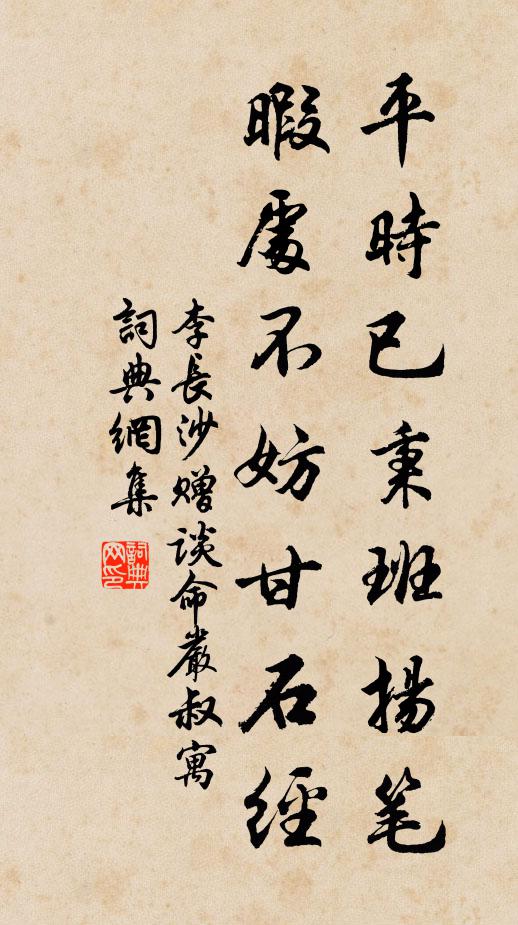 平時已秉班揚笔
暇處不妨甘石經
李長沙贈談命嚴叔寓
詞典網集
詞典网印